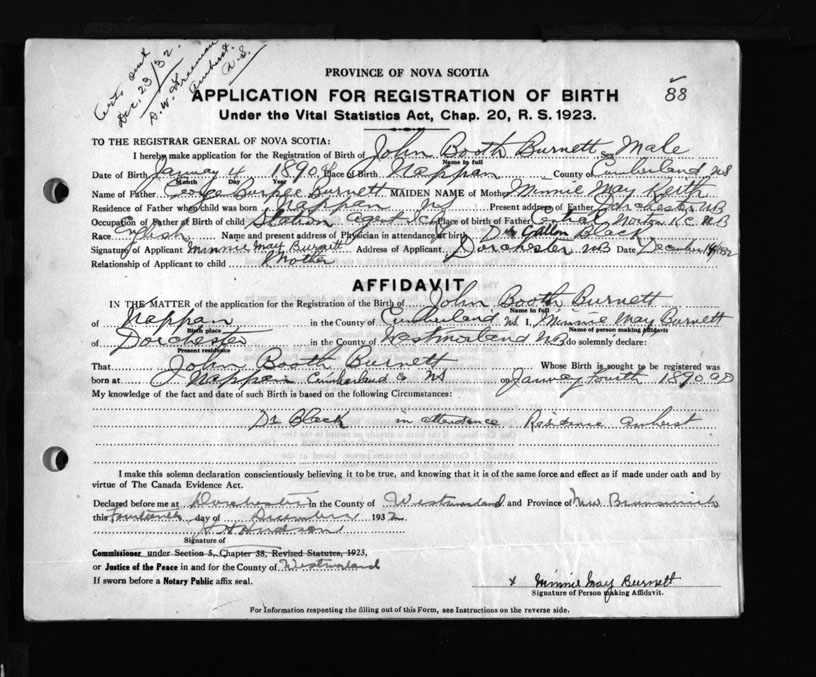 Certs sent
Dec. 23/32.
Amherst.
N.S.
PROVINCE OF NOVA SCOTIA
APPLICATION FOR REGISTRATION OF BIRTH
88
Under the Vital Statistics Act, Chap. 20, R. S. 1923.
TO THE REGISTRAR GENERAL OF NOVA SCOTIA:
I hereby make application for the Registration of Birth of John Booth Burnett Sex Male
Name in full
Date of Birth Janury 4 1890 Place of Birth Nappan County of Cumberland NS
Month Day Year
Name of Father George Burpee Burnett MAIDEN NAME of Mother Minnie May Keith
Residence of Father when child was born Nappan NS Present address of Father Dorchester NB
Occupation of Father at Birth of child Station agent Place of birth of Father Norton K.C. NB
Race English Name and present address of Physician in attendance at birth Dr Black
Signature of Applicant Minnie May Burnett Address of Applicant Dorchester NB Date December 14/1932
Relationship of Applicant to child Mother
AFFIDAVIT
IN THE MATTER of the application for the Registration of the Birth of John Booth Burnett
Name in full
of Nappan in the County of Cumberland NS. I, Minnie May Burnett
Birth place Name of person making Affidavit
of Dorchester in the County of Westmorland NB do solemnly declare:
Present residence
That John Booth Burnett Whose Birth is sought to be registered was
born at Nappan Cumberland Co NS on Janury Fourth 1890 AD
My knowledge of the fact and date of such Birth is based on the following Circumstances:
Dr Black in attendence Residence Amherst
I make this solemn declaration conscientiously believing it to be true, and knowing that it is of the same force and effect as if made under oath and by
virtue of The Canada Evidence Act.
Declared before me at Dorchester in the County of Westmorland and Province of New Brunswick
this Fourteenth day of December 1932
Hudson
Signature of
Commissioner under Section 5, Chapter 38, Revised Statutes, 1923,
or Justice of the Peace in and for the County of Westmorland
If sworn before a Notary Public affix seal.
x Minnie May Burnett
Signature of Person making Affidavit.
For Information respecting the filling out of this Form, see Instructions on the reverse side.